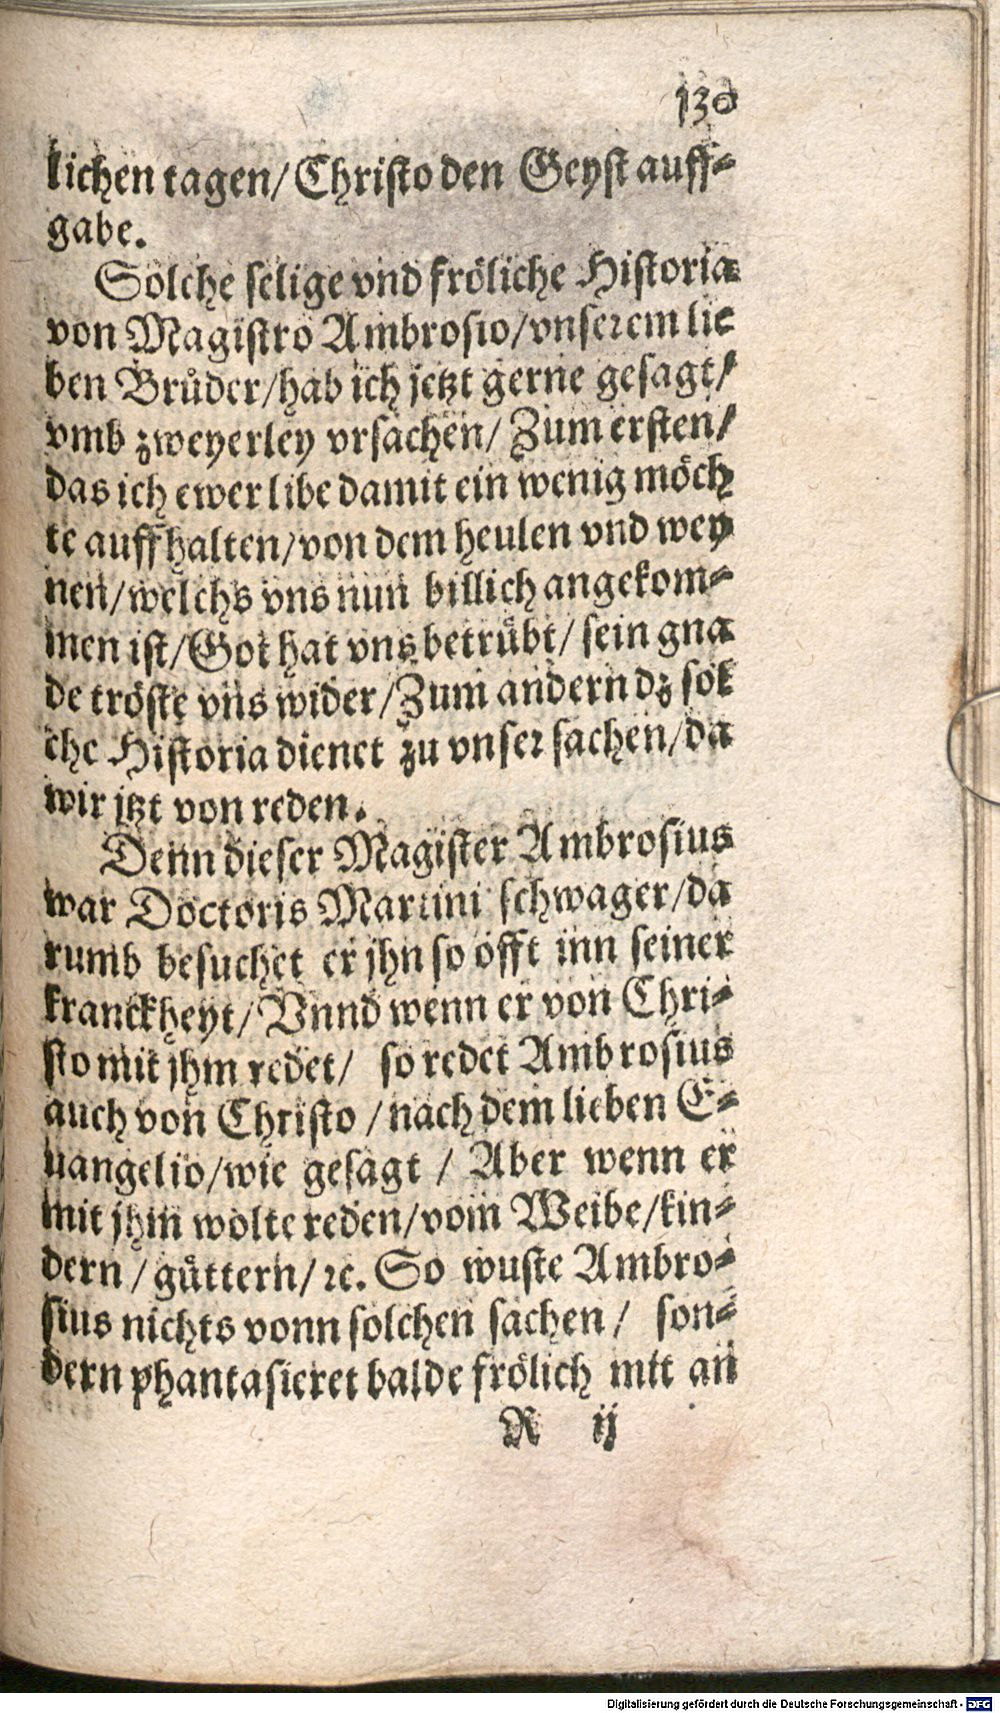 130
lichen tagen/ Christo den Geyst auff⸗
gabe.
Solche selige vnd fröliche Historia
von Magistro Ambrosio/vnserem lie
ben Brůder/hab ich jetzt gerne gesagt/
vmb zweyerley vrsachen/ Zum ersten/
das ich ewer libe damit ein wenig möch
te auffhalten/von dem heulen vnd wey
nen/welchs vns nun billich angekom⸗
men ist/Got hat vns betrübt/ sein gna
de tröste vns wider/Zum andern dz sol
che Historia dienet zu vnser sachen/da
wir jtzt von reden.
Denn dieser Magister Ambrosius
war Doctoris Martini schwager/da
rumb besuchet er jhn so offt inn seiner
kranckheyt/ Vnnd wenn er von Chri⸗
sto mit jhm redet/ so redet Ambrosius
auch von Christo / nach dem lieben E⸗
uangelio/wie gesagt / Aber wenn er
mit jhm wolte reden/vom Weibe/kin⸗
dern / güttern/ ꝛc. So wuste Ambro⸗
sius nichts vonn solchen sachen / son⸗
dern phantasieret balde frölich mit an
R ij
Digitalisierung gefördert durch die Deutsche Forschungsgemeinschaft - DFG